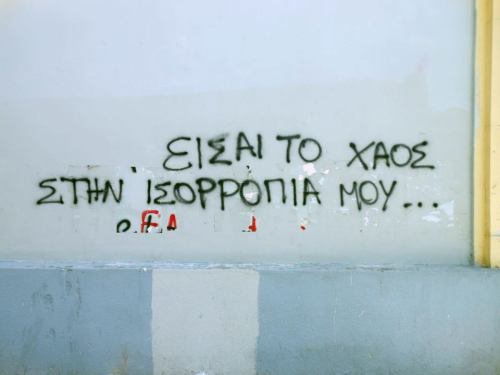 ΕΙΣΑΙ ΤΟ ΧΑΟΣ
ΣΤΗΝ ΙΣΟΡΡΟΠΙΑ ΜΟΥ...